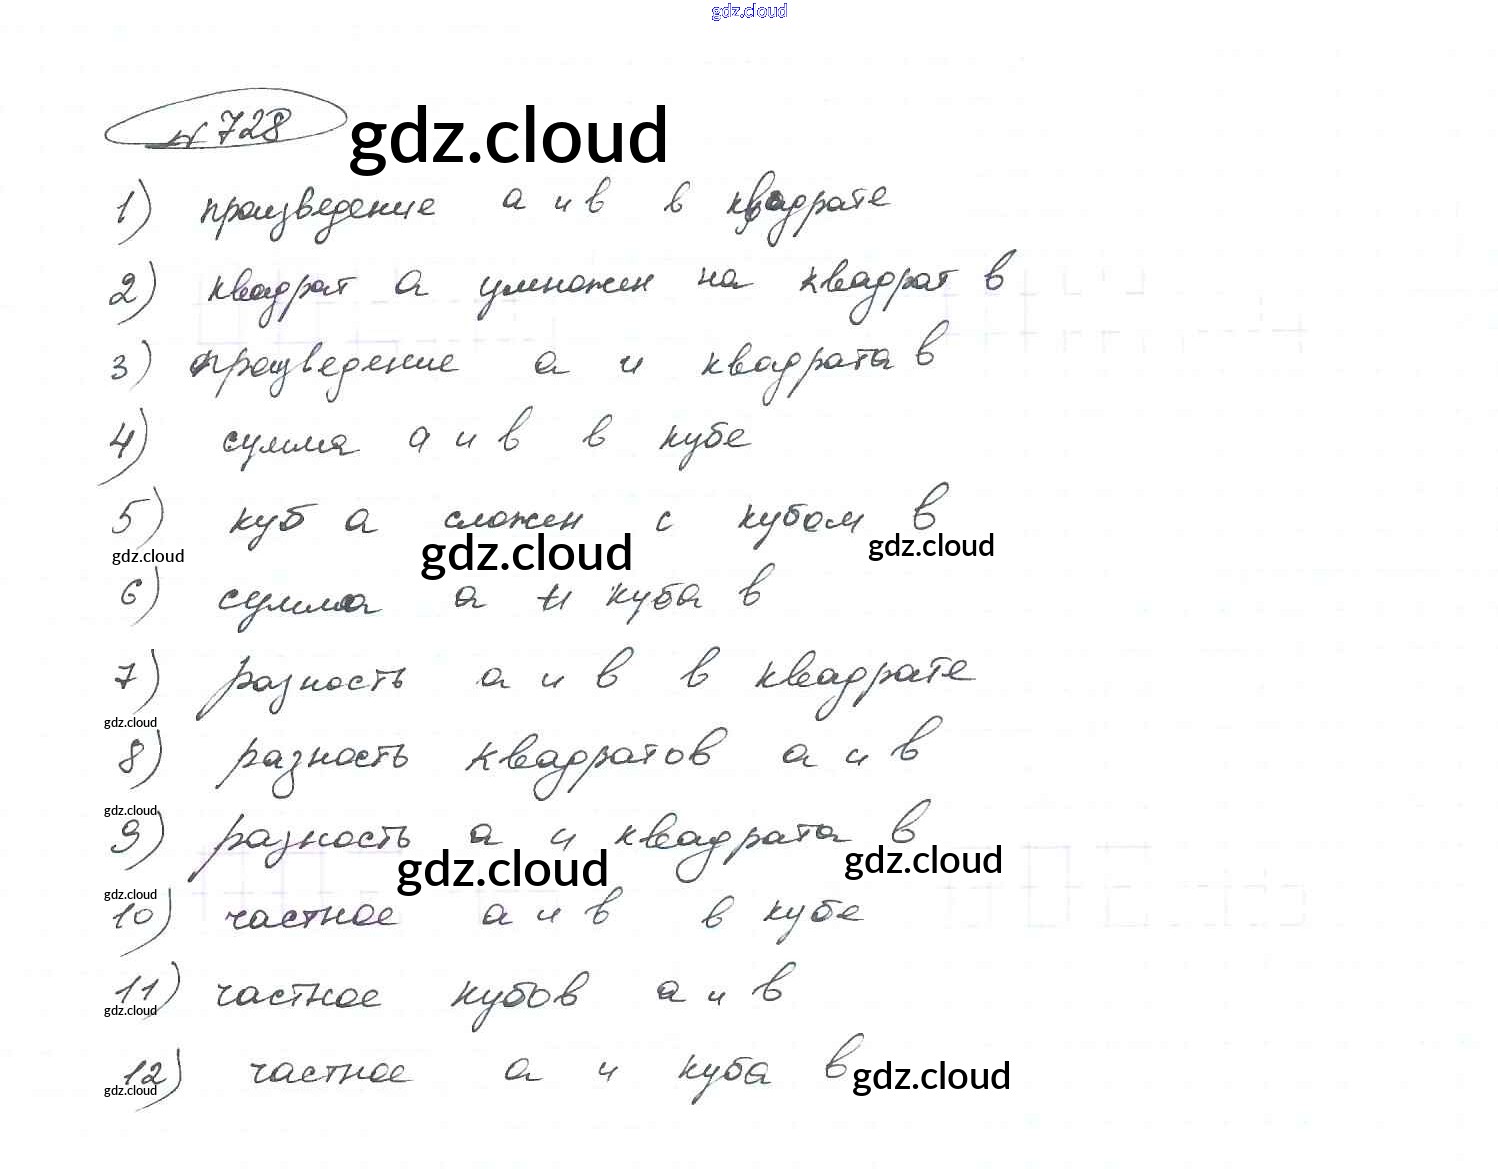 gdz.cloud
№ 728 gdz.cloud
1) произведение a и в в квадрате
2) квадрат a умножен на квадрат в
3) произведение a и квадрата в
4) сумма a и в в кубе
5) куб a сложен с кубом в
gdz.cloud gdz.cloud gdz.cloud
6) сумма a и куба в
7) разность a и в в квадрате
gdz.cloud
8) разность квадратов a и в
gdz.cloud
9) разность a и квадрата в
gdz.cloud gdz.cloud
gdz.cloud
10) частное a и в в кубе
11) частное кубов a и в
gdz.cloud
12) частное a и куба в gdz.cloud
gdz.cloud